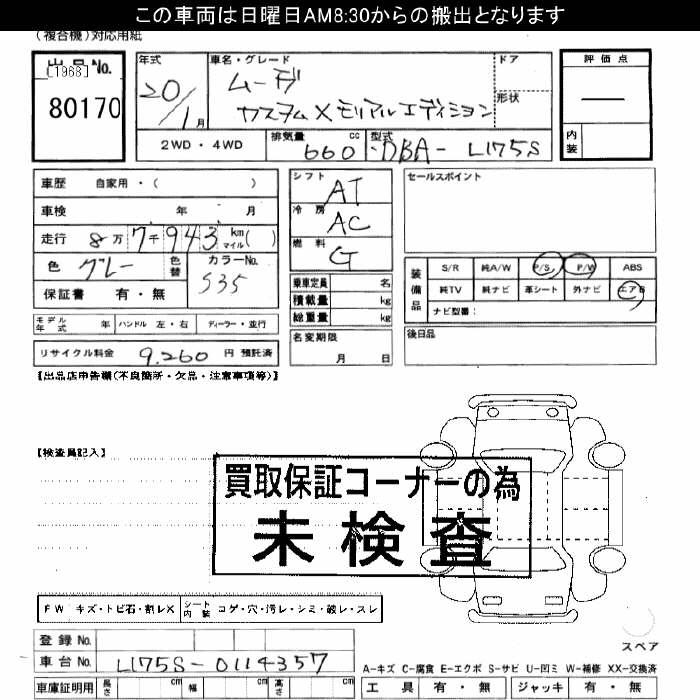 この車両は日曜日AM8:30からの搬出となります
(複合機)対応用紙
出品No.
[1968]
80170
年式
20/1月
車名・グレード
ムーヴ
カスタムXモリアルエディション
ドア
形状
評価点
―
内装
2WD・4WD
排気量
660
cc
型式
DBA-L175S
車歴 自家用・( )
車検 年 月
走行 8万7千943 km マイル( )
色 グレー 色替
カラーNo.
S35
保証書 有・無
シフト AT
冷房 AC
燃料 G
乗車定員 名
積載量 kg
総重量 kg
名変期限
月 日
セールスポイント
装備品
S/R 純A/W P/S P/W ABS
純TV 純ナビ 革シート 外ナビ エアB
ナビ型番:
後日品
モデル年式 年 ハンドル 左・右 ディーラー・並行
リサイクル料金 9,260 円 預託済
【出品店申告欄(不良箇所・欠品・注意事項等)】
【検査員記入】
買取保証コーナーの為
未検査
FW キズ・トビ石・割レX
シート内装 コゲ・穴・汚レ・シミ・破レ・スレ
スペア
登録No.
車台No. L175S-0114357
車庫証明用 長さ cm 幅 cm 高さ cm
A-キズ C-腐食 E-エクボ S-サビ U-凹ミ W-補修 XX-交換済
工具 有・無 ジャッキ 有・無